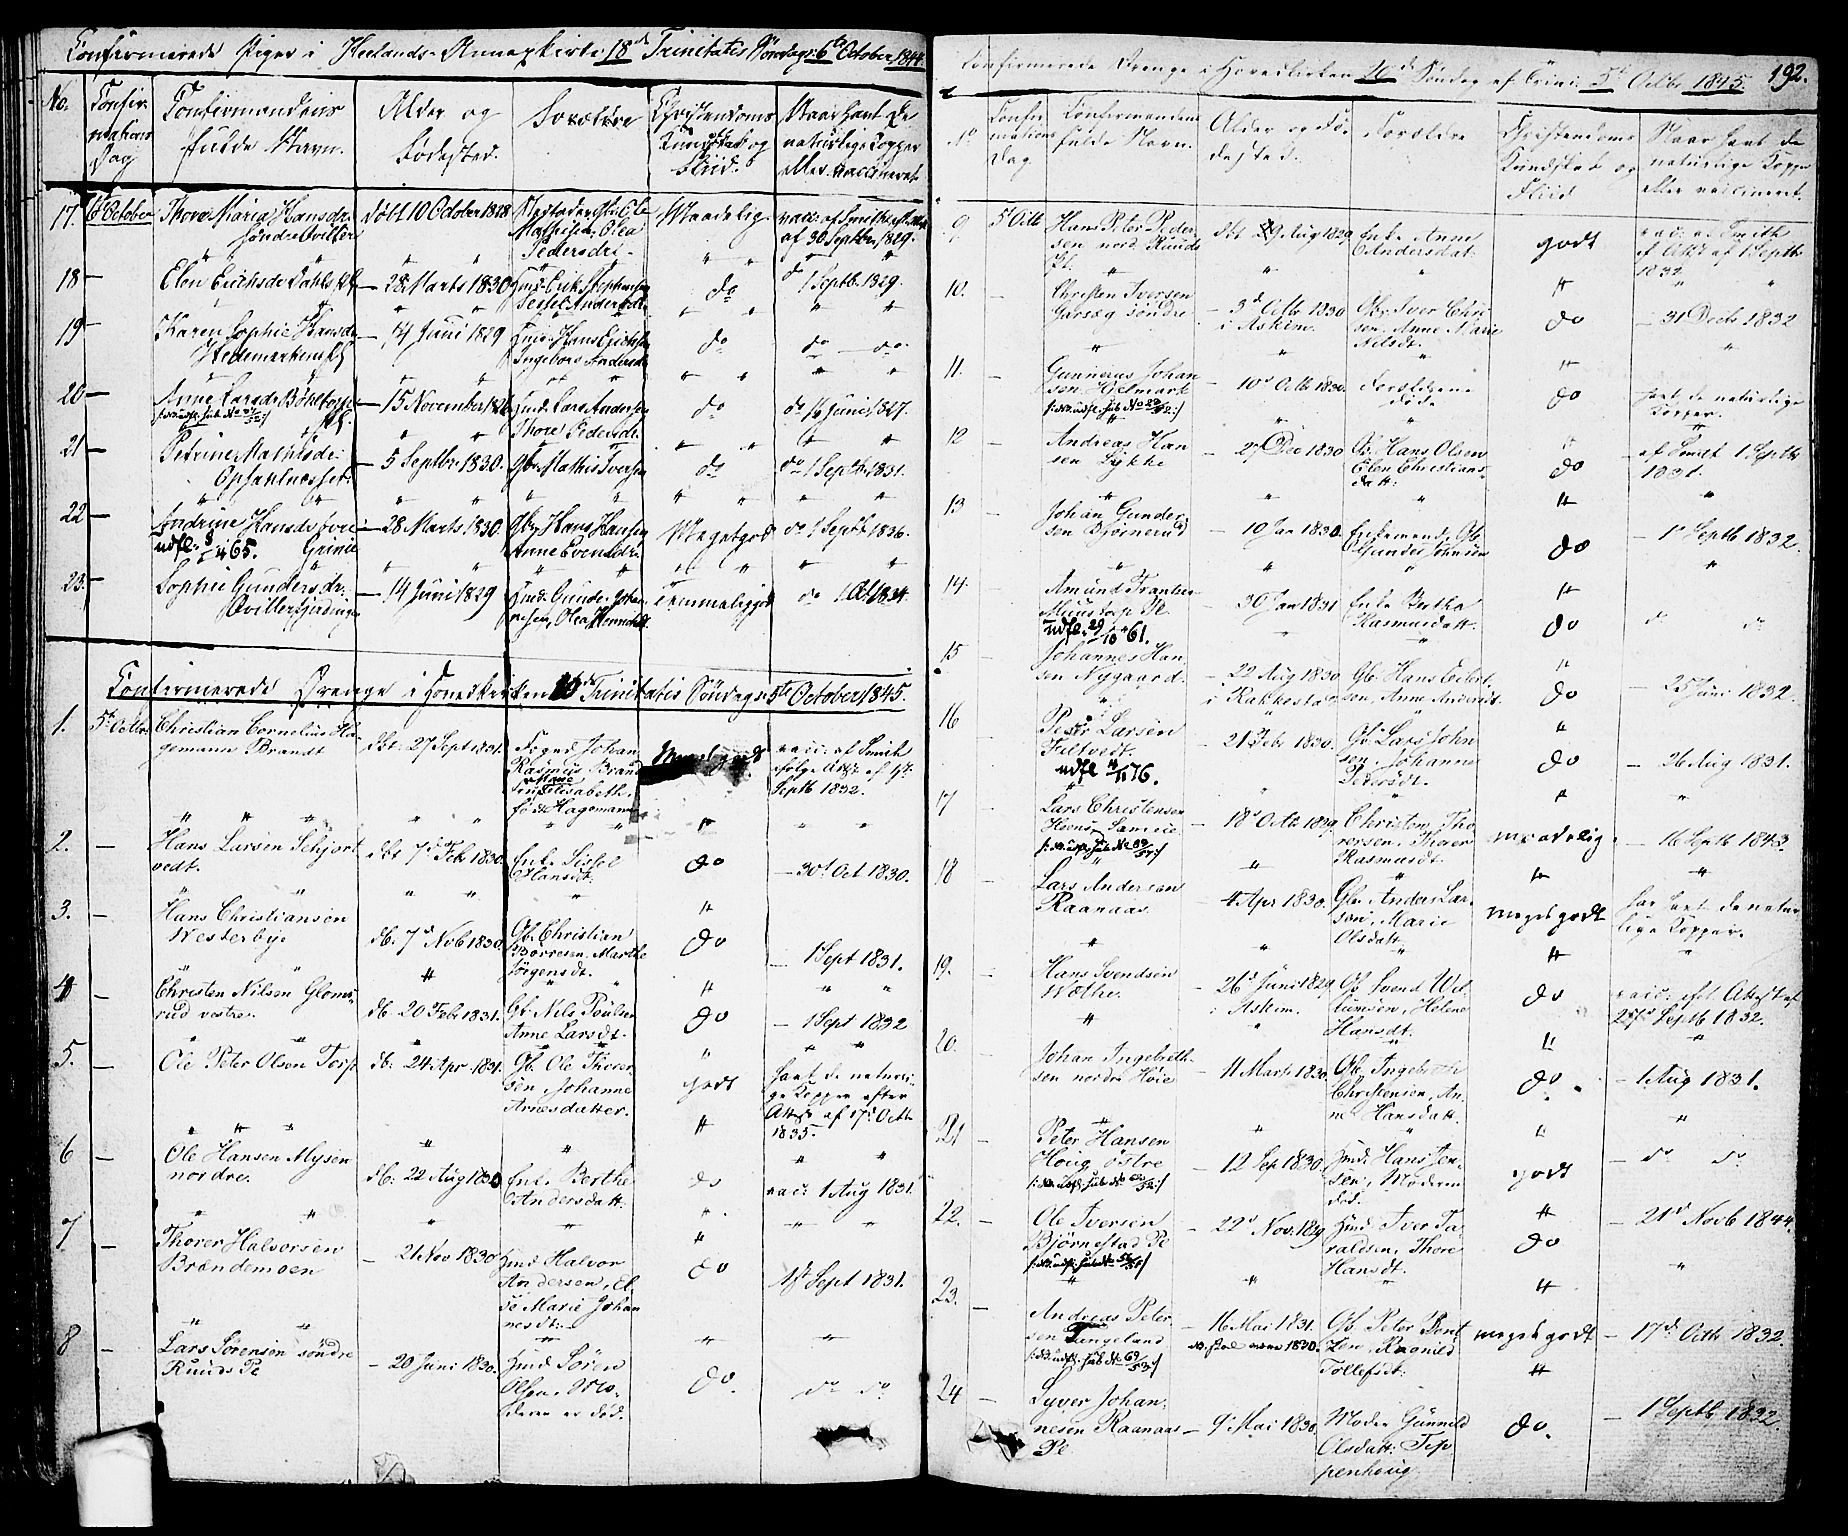 Confirmerede Piger i Heelands-Annexkirke 18de Trinitatis Søndag: 6te October 1844.
No.
Confir-
mations
Dag
Confirmandens
fulde Navn.
Alder og
Fødested.
Forældre
Christendoms
Kundskab og
Fliid.
Naar havt de
naturlige Kopper
eller vaccineret
17. 6 October Thore Maria Hansdr:
Søndre Qvitler
født 10 October 1828
Mathisen, Olea
Pedersdr:
Maadelig
af 30 Septbr 1829.
18 — Elen Erichsdr Dahls Pl.
— 28 Marts 1830
Huus: Erik Stephensen
Sessel Andersdr
do
do 1 Septb. 1829.
19 — Karen Sophie Hansdr
Hedemarken Pl
— 14 Juni 1829
Huus: Hans Erichsen
Ingeborg Andersdr
do
do — do
20 — Anne Larsdr
— 15 November 1826
Huus: Lars Andersen
Thore Pedersdr.
do
do 16 Juni 1827.
21 — Petrine Mathisdr:
Opsahl
— 5 Septbr 1830.
Gbr. Mathis Iversen
do
do 1 Septb. 1831.
22 — Andrine Hansdr
udfl: 8/4 65. Grinie
— 28 Marts 1830.
Gbr Hans Hansen
Anne Evensdr:
Megetgod
do 1 Septb 1836.
23. — Sophie Gundersdr:
Qvitlerfjerdingen
— 14 Juni 1829
Huus: Gunder Johan-
nesen, Olea
Temmeliggod
do
Confirmerede Drenge i Hovedkirken 16de Trinitatis Søndag: 5te October 1845.
1. 5te Octbr. Christian Cornelius Ha-
gemann Brandt
dbt: 27 Sept 1831.
Foged Johan
Rasmus Brandt
Elisabeth,
fødte Hagemann
Megetgodt
vacc: af Smith
ifølge Attst af 1ste
Septb 1832.
2. — Hans Larsen Schjort-
vedt.
dbt 7d Feb 1830.
Enke Sissel
Hansdt:
do
— 30d Oct 1830.
3. — Hans Christiansen
Westerbye
db. 7d Novb 1830.
Gb. Christian
Børresen, Marthe
Jørgensdt.
do
— 1 Sept 1831.
4 — Christen Nilsen Gloms-
rud vestre.
db. 20 Feb 1831.
Gb. Nils Poulsen
Anne Larsdt.
do
— 1 Sept 1832
5. — Ole Peter Olsen Torp
db. 24 Apr. 1831.
Gb. Ole Thorer-
sen Johanne
Arnesdatter.
godt
havt de naturli-
ge Kopper efter
Attst af 17d Octb
1835.
6 — Ole Hansen Mysen
nordre.
db: 22 Aug 1830
Enke Berthe
Andersdatt.
do
vac: 1 Aug 1831.
7 — Thorer Halvorsen
Brandemoen
— 21 Nov 1830
Huus Halvor
Andersen, El-
se Marie Johan-
nesdt:
do
1ste Sept 1831.
8 — Lars Sørensen søndre
Ruuds Pe
— 20 Juni 1830.
Huus Søren
Olsen, Mo-
deren er død.
do.
do do
Confirmerede Drenge i Hovedkirken 16de Søndag af Trini: 5te Octbr 1845.
192.
No
Confir-
mations
Dag
Confirmandens
fulde Navn.
Alder og Fø-
dested.
Forældre
Christendoms
Kundskab og
Fliid
Naar havt de
naturlige Kopper
eller vaccineret.
9 5te Octb Hans Peter Peder-
sen nord Ruuds
Pl.
dbt 29 Aug 1829
Enke Anne
Andersdat.
godt
vac: af Smith
af Attst af 1 Septb
1832
10. — Christen Iversen
Garseg søndre
— 3d Octbr 1830
i Askim.
Gbr. Iver Chri-
sen, Anne Marie
Nilsdt.
do
— 31 Decb 1832
11. — Gunnerus Johan-
sen Helmark
— 10d Octb 1830.
Forældrene
døde
do
havt de naturlige
Kopper.
12 — Andreas Han-
sen Lykke
— 27 Dec 1830
Gb. Hans Olsen
Elen Christians-
datt:
do
af Smith 1 Septb
1831.
13 — Johan Gunder-
sen Bjørnerud
— 10 Jan 1830.
Enkemand, Gb.
Gunder Johnsen
do
— 1 Septb 1832.
14. — Amund Frantsen
Muustorp Pe
udfl: 29/10 61.
— 30 Jan 1831
Enke Berthe
Rasmusdatt.
do
do do
15 — Johannes Han-
sen Nygaard.
— 22 Aug 1830
i Rakkestad
Gb. Hans
sen, Anne Andersdt.
do
— 25 Juni 1832.
16 — Peder Larsen
Fultvedt.
udfl 4/11 76.
— 21 Febr 1830.
Gb Lars John-
sen, Johanne
Pedersdt.
do
— 26 Aug 1831.
17 — Lars Christensen
Hoens Sameie
— 18d Octb 1829.
Christen Tho-
rersen, Thorer
Rasmusdt.
maadelig.
— 16 Septb 1843.
18 — Lars Andersen
Raanaas.
— 4 Apr 1830.
Gb. Anders Lar-
sen, Marie
Olsdatt.
megetgodt
har havt de natur-
lige Kopper.
19. — Hans Svendsen
Wæthe.
— 26d Juni 1829
i Askim.
Gb Svend Wil-
lumsen, Helene
Hansdt.
do
vacc: ifl Attest af
25d Septb 1832.
20. Johan Ingebreth-
sen nordre Høie
— 11 Marts 1830.
Gb. Ingebreth
Christensen, An-
ne Hansdatt.
do.
— 1 Aug 1831.
21 — Peter Hansen
Houg østre
— 12 Sep 1830.
Huus. Hans Jen-
sen, Moderen
død.
godt
— do do
22. — Ole Iversen
Bjørnestad Pe
— 22d Nov. 1829
Huus. Iver Ta-
raldsen, Thore
Hansdt.
do
— 21d Novb 1844.
23. — Andreas Peter-
sen Tingeland
— 16 Mai 1831.
Gb. Peter Bent-
zen, Ragnild
Tollefsdt:
megetgodt
— 17d Octb 1832.
24 — Syver Johan-
nesen Raanaas
Pe
— 9d Mai 1830.
Moder Gunnild
Olsdatt: Tep-
penhoug
do.
— 1 Septb 1832.